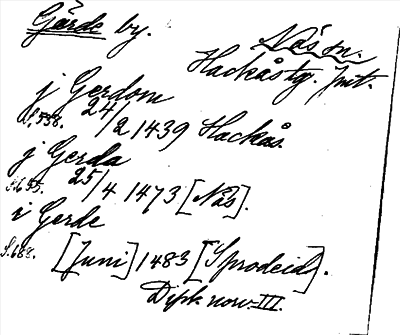 Gärde by.
Näs sn.
Hackås tg. Jmt.
j Gerdom
S. 558. 24/2 1439 Hackås.
j Gerda
S. 655. 25/4 1473 [Näs].
i Gerde
S. 688. [Juni] 1483 [Sprodeid].
Dipl. norv. III.